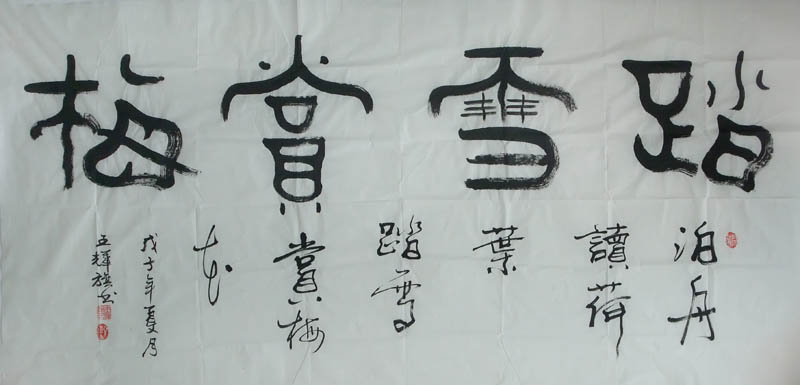 踏雪賞梅
泊舟
讀荷
葉
踏雪
賞梅
花
戊子年夏月
王輝旗书